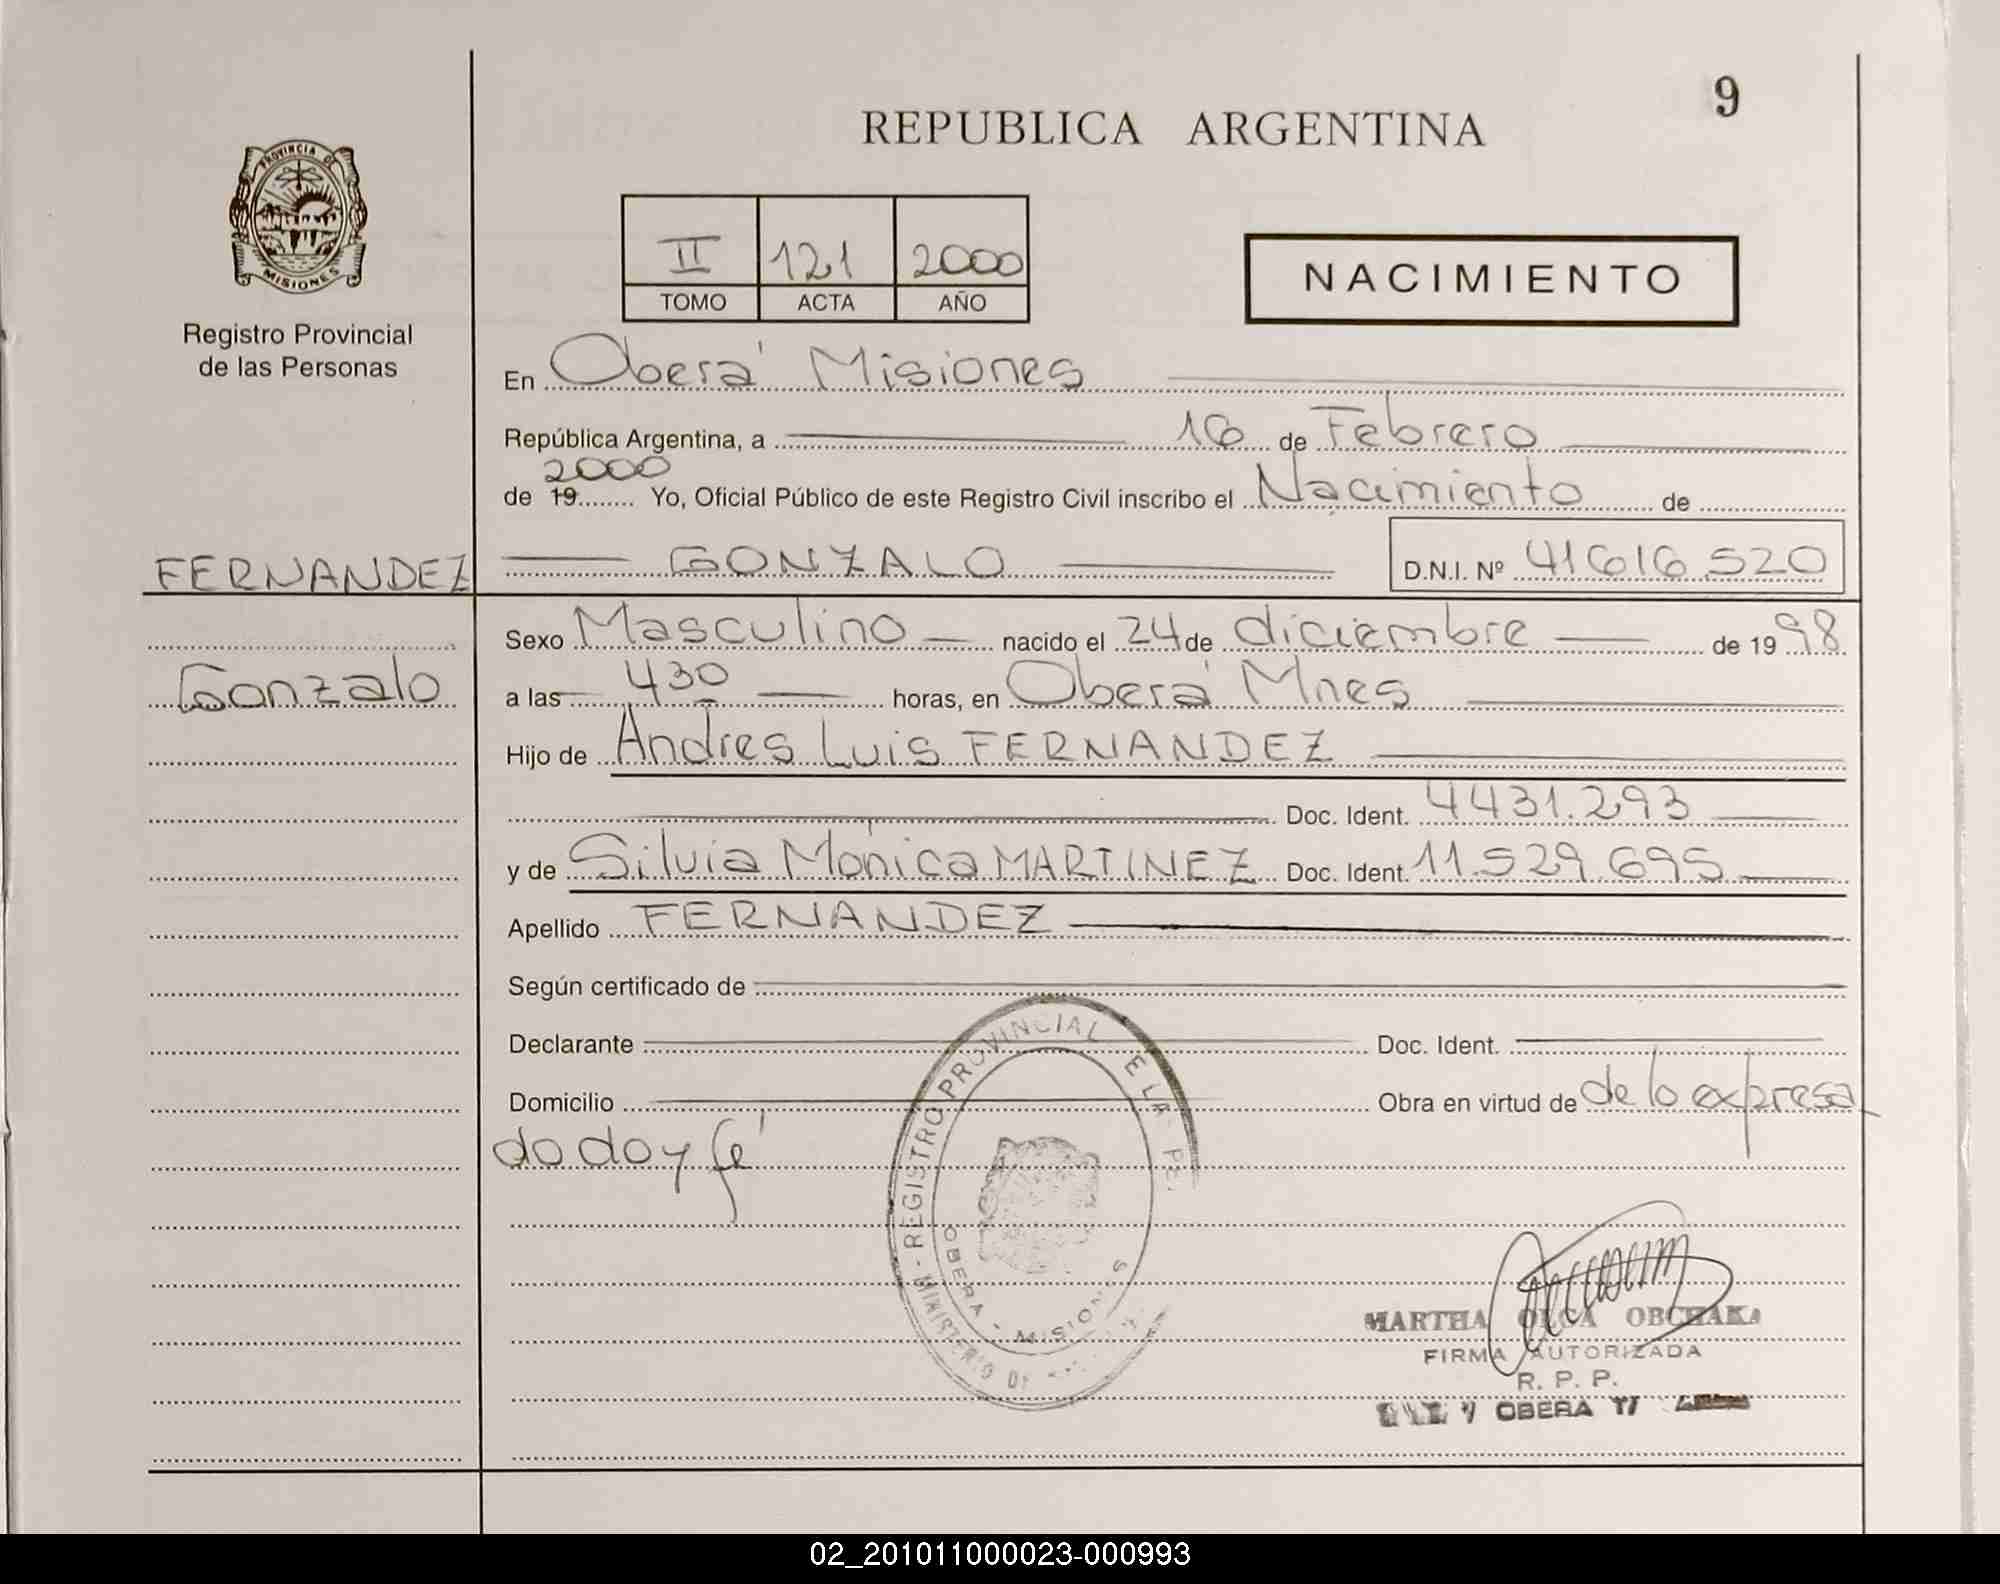 9
REPUBLICA ARGENTINA
PROVINCIA DE
MISIONES
Registro Provincial
de las Personas
II 121 2000
TOMO ACTA AÑO
NACIMIENTO
En Oberá Misiones
República Argentina, a 16 de Febrero
2000
de 19 Yo, Oficial Público de este Registro Civil inscribo el Nacimiento de
FERNANDEZ GONZALO D.N.I. Nº 41616.520
Sexo Masculino nacido el 24 de diciembre de 19 98
Gonzalo a las 430 horas, en Oberá Mnes
Hijo de Andres Luis FERNANDEZ
Doc. Ident. 4431.293
y de Silvia Mónica MARTINEZ Doc. Ident. 11.529.695
Apellido FERNANDEZ
Según certificado de
Declarante Doc. Ident.
Domicilio Obra en virtud de de lo expresa
do doy fé
REGISTRO PROVINCIAL E LA PE
MINISTERIO DE
OBERA - MISIONES
MARTHA OLGA OBCHAKA
FIRMA AUTORIZADA
R. P. P.
OBERA
02_201011000023-000993